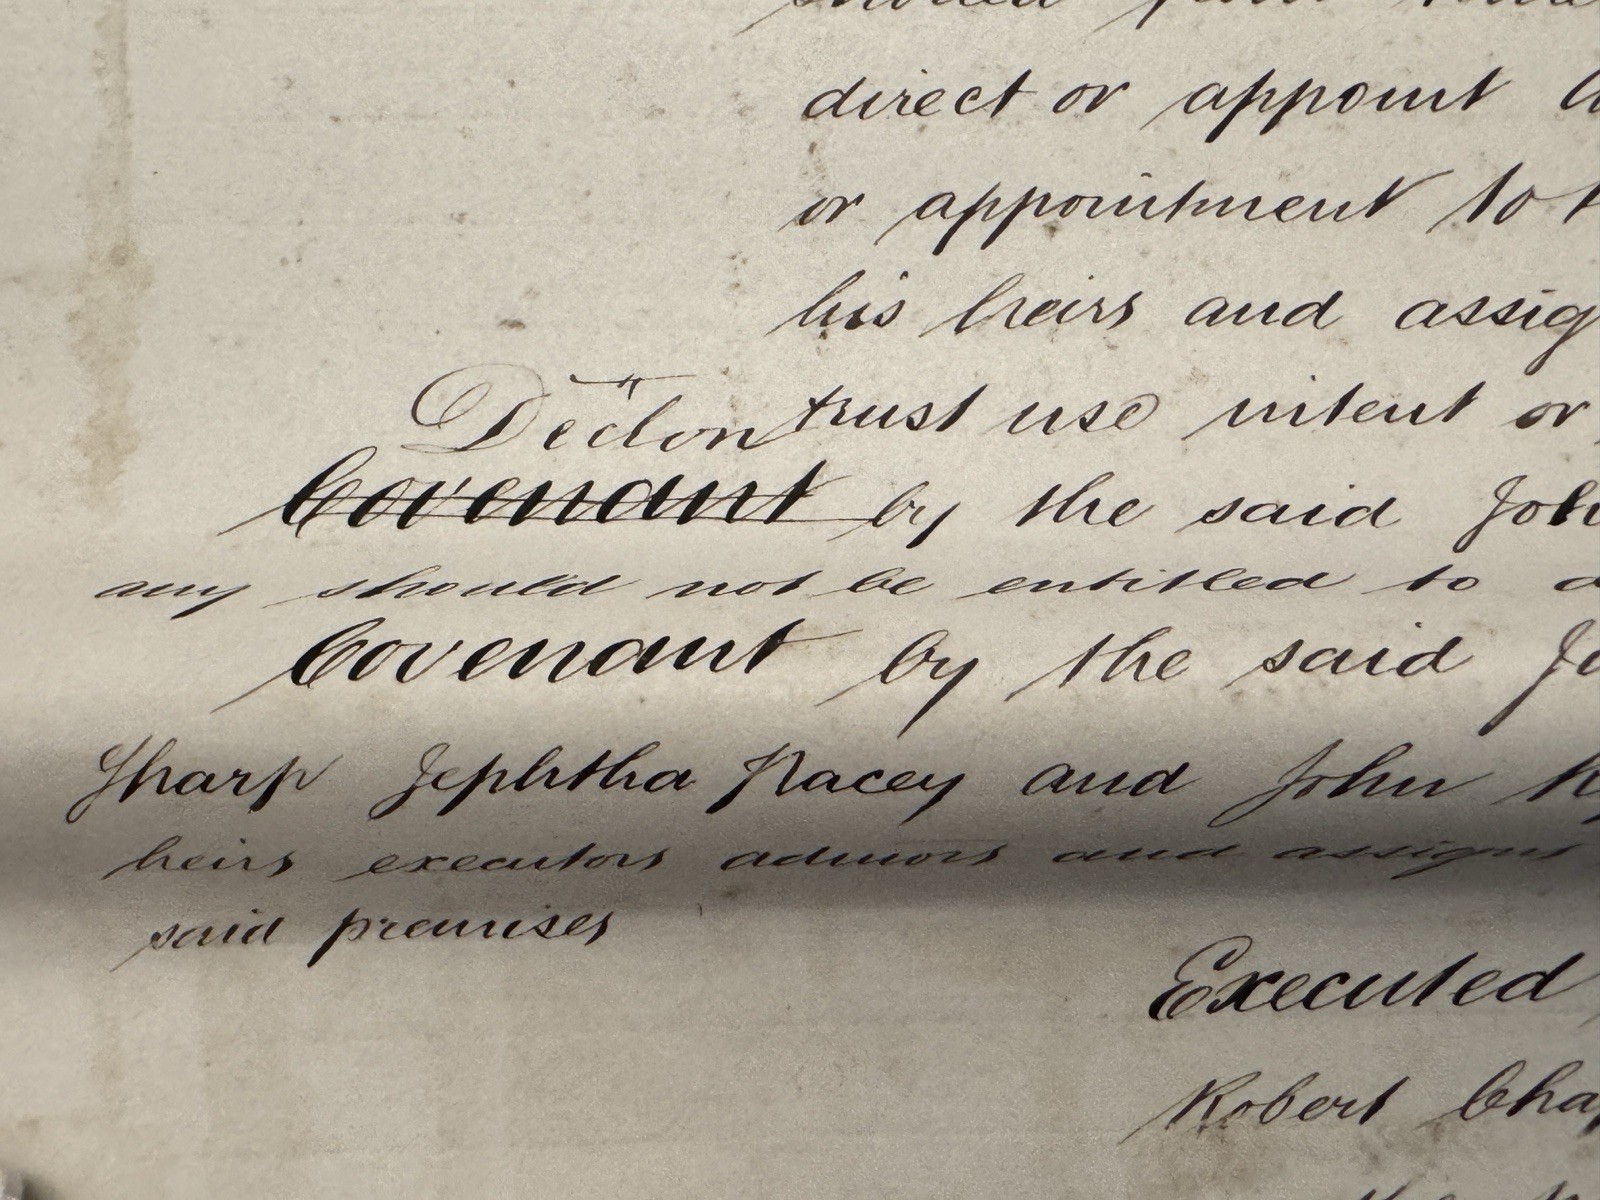 direct or appoint
or appointment to
his heirs and assig
trust use intent or
Declon
Covenant by the said Joh
any should not be entitled to
Covenant by the said
Sharp Jephtha Pacey and John
heirs executors admors and assigns
said premises
Executed
Robert Chap